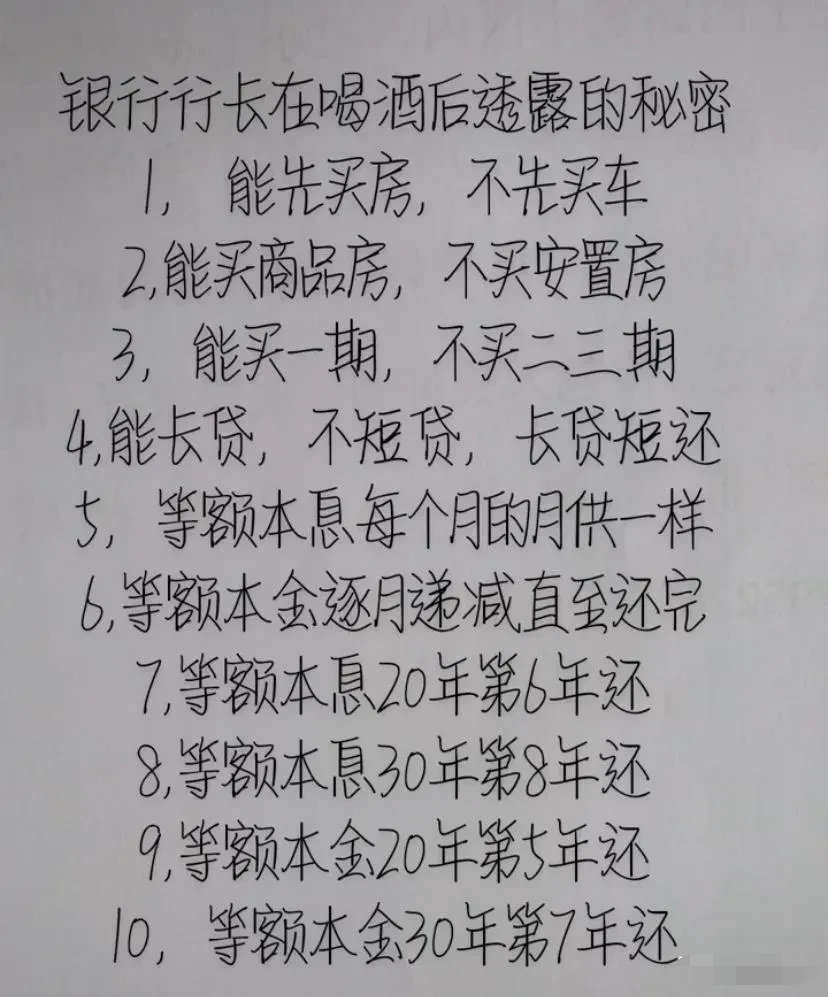 银行行长在喝酒后透露的秘密
1, 能先买房, 不先买车
2,能买商品房, 不买安置房
3, 能买一期, 不买二三期
4,能长贷, 不短贷, 长贷短还
5, 等额本息每个月的月供一样
6,等额本金逐月递减直至还完
7,等额本息20年第6年还
8,等额本息30年第8年还
9,等额本金20年第5年还
10, 等额本金30年第7年还